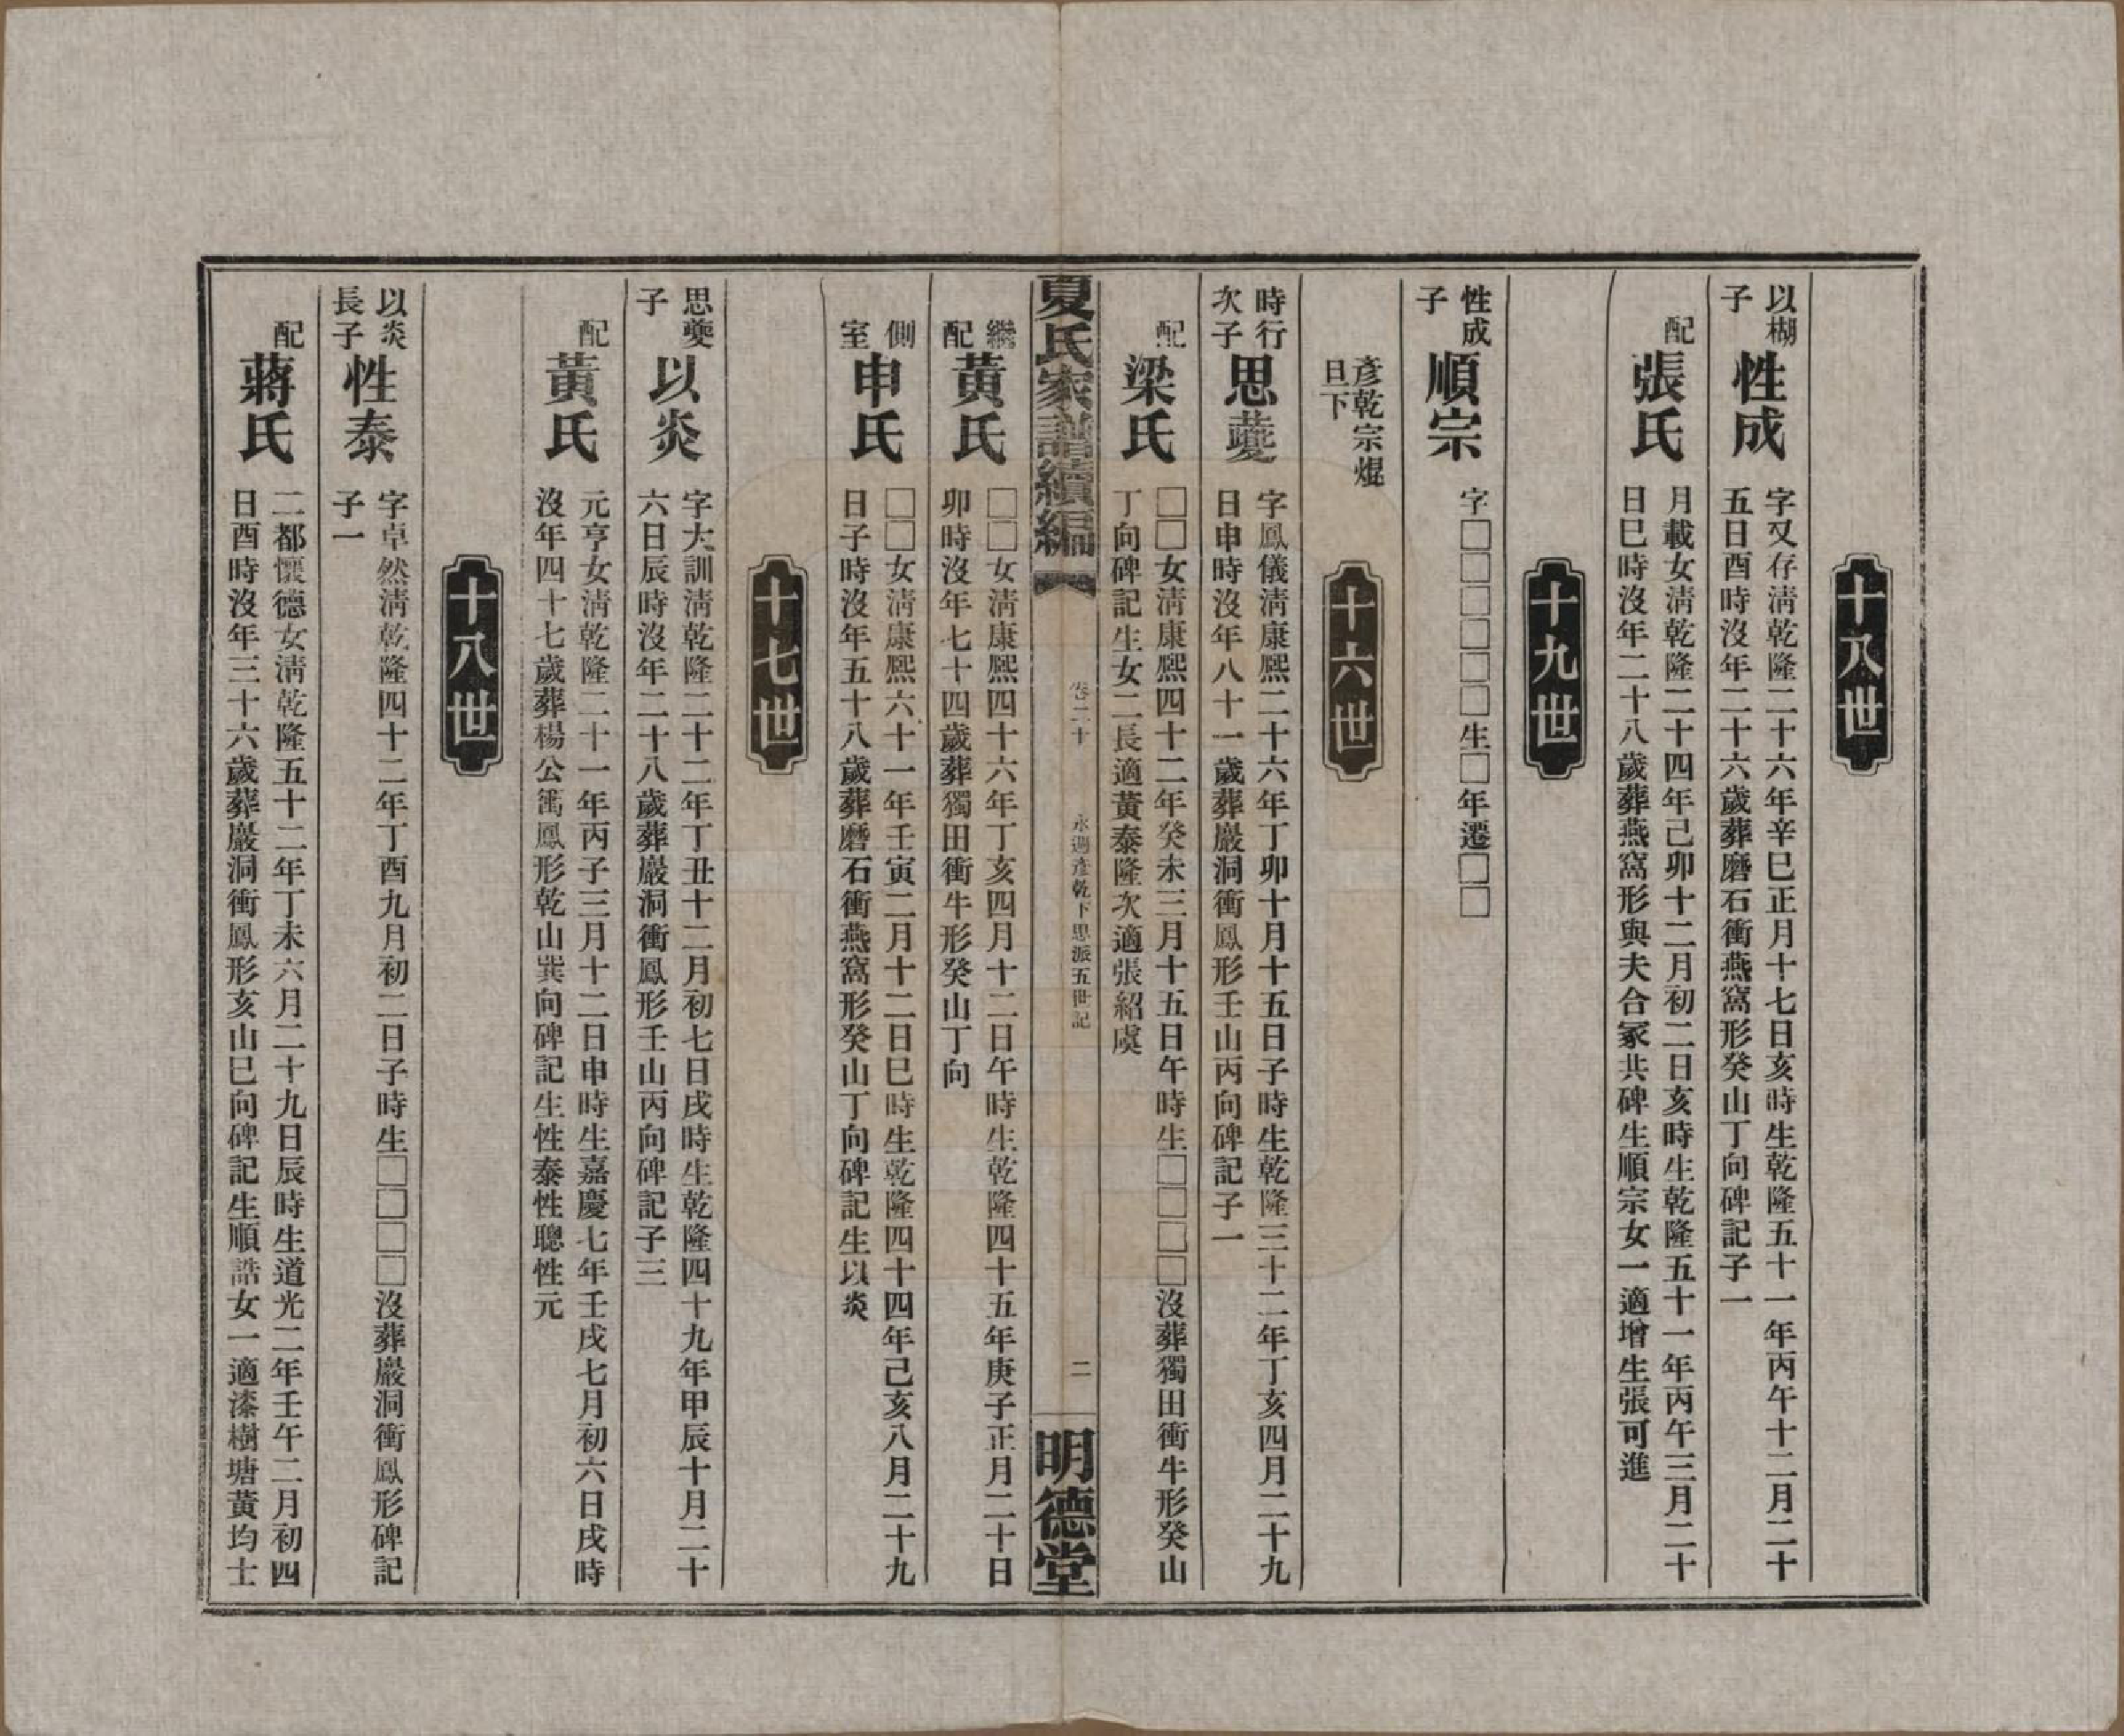 十八世
以楜
子
性成
字又存淸乾隆二十六年辛巳正月十七日亥時生乾隆五十一年丙午十二月二十
五日酉時沒年二十六歲葬磨石衝燕窩形癸山丁向碑記子一
配
張氏
月載女淸乾隆二十四年己卯十二月初二日亥時生乾隆五十一年丙午三月二十
日巳時沒年二十八歲葬燕窩形與夫合冢共碑生順宗女一適增生張可進
十九世
性成
子
順宗
字□□□□□□生□年遷□□
彥乾宗焜
旦下
十六世
時行
次子
思夔
字鳳儀淸康熙二十六年丁卯十月十五日子時生乾隆三十二年丁亥四月二十九
日申時沒年八十一歲葬巖洞衝鳳形壬山丙向碑記子一
配
梁氏
□□女淸康熙四十二年癸未三月十五日午時生□□□□沒葬獨田衝牛形癸山
丁向碑記生女二長適黃泰隆次適張紹虞
夏氏家譜續編
卷二十
永週彥乾下思派五世記
二
明德堂
繼
配
黃氏
□□女淸康熙四十六年丁亥四月十二日午時生乾隆四十五年庚子正月二十日
卯時沒年七十四歲葬獨田衝牛形癸山丁向
側
室
申氏
□□女淸康熙六十一年壬寅二月十二日巳時生乾隆四十四年己亥八月二十九
日子時沒年五十八歲葬磨石衝燕窩形癸山丁向碑記生以炎
十七世
思夔
子
以炎
字大訓淸乾隆二十二年丁丑十二月初七日戌時生乾隆四十九年甲辰十月二十
六日辰時沒年二十八歲葬巖洞衝鳳形壬山丙向碑記子三
配
黃氏
元亨女淸乾隆二十一年丙子三月十二日申時生嘉慶七年壬戌七月初六日戌時
沒年四十七歲葬楊公鳳形乾山巽向碑記生性泰性聰性元
十八世
以炎
長子
性泰
字卓然淸乾隆四十二年丁酉九月初二日子時生□□□□沒葬巖洞衝鳳形碑記
子一
配
蔣氏
二都懷德女淸乾隆五十二年丁未六月二十九日辰時生道光二年壬午二月初四
日酉時沒年三十六歲葬巖洞衝鳳形亥山巳向碑記生順誥女一適漆樹塘黃均士